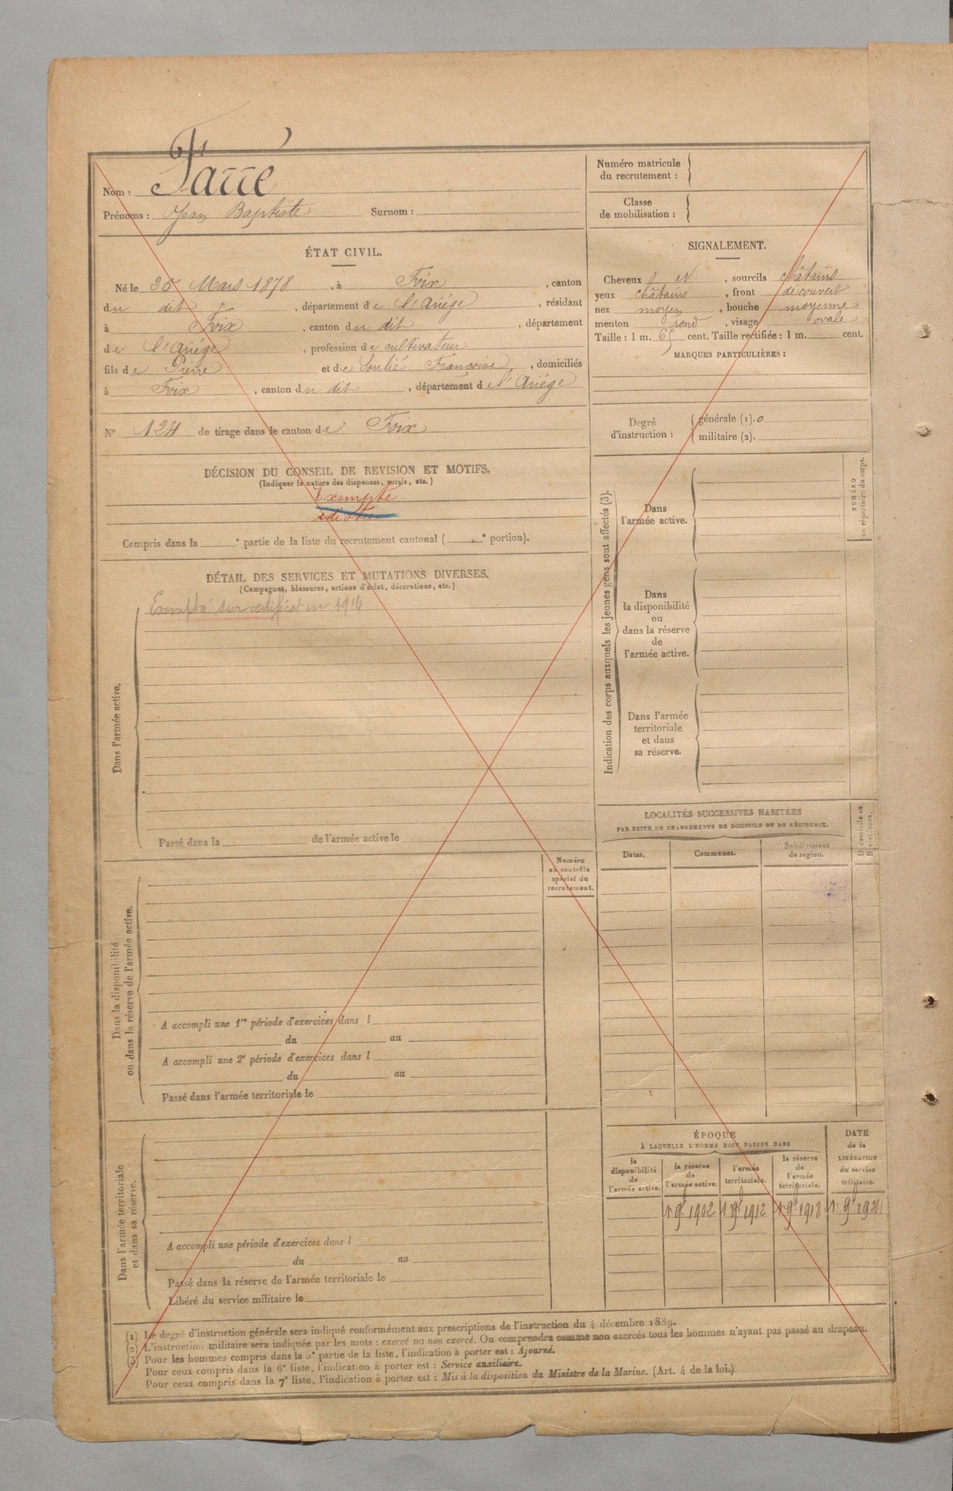 Nom : Farré
Prénoms : Jean Baptiste Surnom :
Numéro matricule
du recrutement :
Classe
de mobilisation :
ÉTAT CIVIL.
Né le Mars 1878, à Foix, canton
du dit, département de l'Ariège, résidant
à Foix, canton du dit, département
de l'Ariège, profession de cultivateur
fils de Pierre et de Soulié Françoise, domiciliés
à Foix, canton du dit, département de l'Ariège
N° 124 de tirage dans le canton de Foix
SIGNALEMENT.
Cheveux, sourcils châtains
yeux châtains, front découvert
nez moyen, bouche moyenne
menton rond, visage ovale
Taille : 1 m. cent. Taille rectifiée : 1 m. cent.
MARQUES PARTICULIÈRES :
Degré
d'instruction :
générale (1). 0
militaire (2).
DÉCISION DU CONSEIL DE REVISION ET MOTIFS.
(Indiquer la nature des dispenses, sursis, etc.)
Exempté
idiotie
Compris dans la e partie de la liste du recrutement cantonal ( e portion).
DÉTAIL DES SERVICES ET MUTATIONS DIVERSES.
(Campagnes, blessures, actions d'éclat, décorations, etc.)
Exempté sur certificat en 1914
Dans l'armée active.
Passé dans la de l'armée active le
Indication des corps auxquels les jeunes gens sont affectés (3).
Dans
l'armée active.
Dans
la disponibilité
ou
dans la réserve
de
l'armée active.
Dans l'armée
territoriale
et dans
sa réserve.
NUMÉRO
au répertoire du corps.
LOCALITÉS SUCCESSIVES HABITÉES
PAR SUITE DE CHANGEMENTS DE DOMICILE OU DE RÉSIDENCE.
Dates.
Communes.
Subdivisions
de région.
Domicile ou
Résidence.
Numéro
au contrôle
spécial du
recrutement.
Dans la disponibilité
ou dans la réserve de l'armée active.
A accompli une 1re période d'exercices dans l
du au
A accompli une 2e période d'exercices dans l
du au
Passé dans l'armée territoriale le
Dans l'armée territoriale
et dans sa réserve.
A accompli une période d'exercices dans l
du au
Passé dans la réserve de l'armée territoriale le
Libéré du service militaire le
ÉPOQUE
À LAQUELLE L'HOMME DOIT PASSER DANS
la
disponibilité
de
l'armée active.
la réserve
de
l'armée active.
l'armée
territoriale.
la réserve
de
l'armée
territoriale.
DATE
de la
LIBÉRATION
du service
militaire.
1 9b 1902 1 9b 1912 1 9b 1918 1 9b 1924
(1) Le degré d'instruction générale sera indiqué conformément aux prescriptions de l'instruction du 4 décembre 1889.
(2) L'instruction militaire sera indiquée par les mots : exercé ou non exercé. On comprendra comme non exercés tous les hommes n'ayant pas passé au drapeau.
(3) Pour les hommes compris dans la 5e partie de la liste, l'indication à porter est : Ajourné.
Pour ceux compris dans la 6e liste, l'indication à porter est : Service auxiliaire.
Pour ceux compris dans la 7e liste, l'indication à porter est : Mis à la disposition du Ministre de la Marine. (Art. 4 de la loi.)